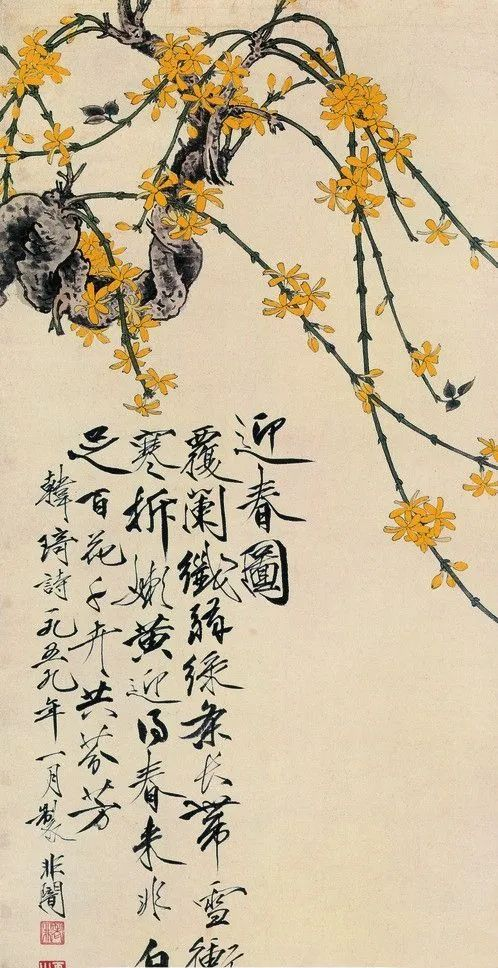 迎春圖
覆闌纖弱綠條長帶雪衝
寒拆嫩黃迎得春來非自
足百花千卉共芬芳
韓琦詩一九五九年一月製非闇